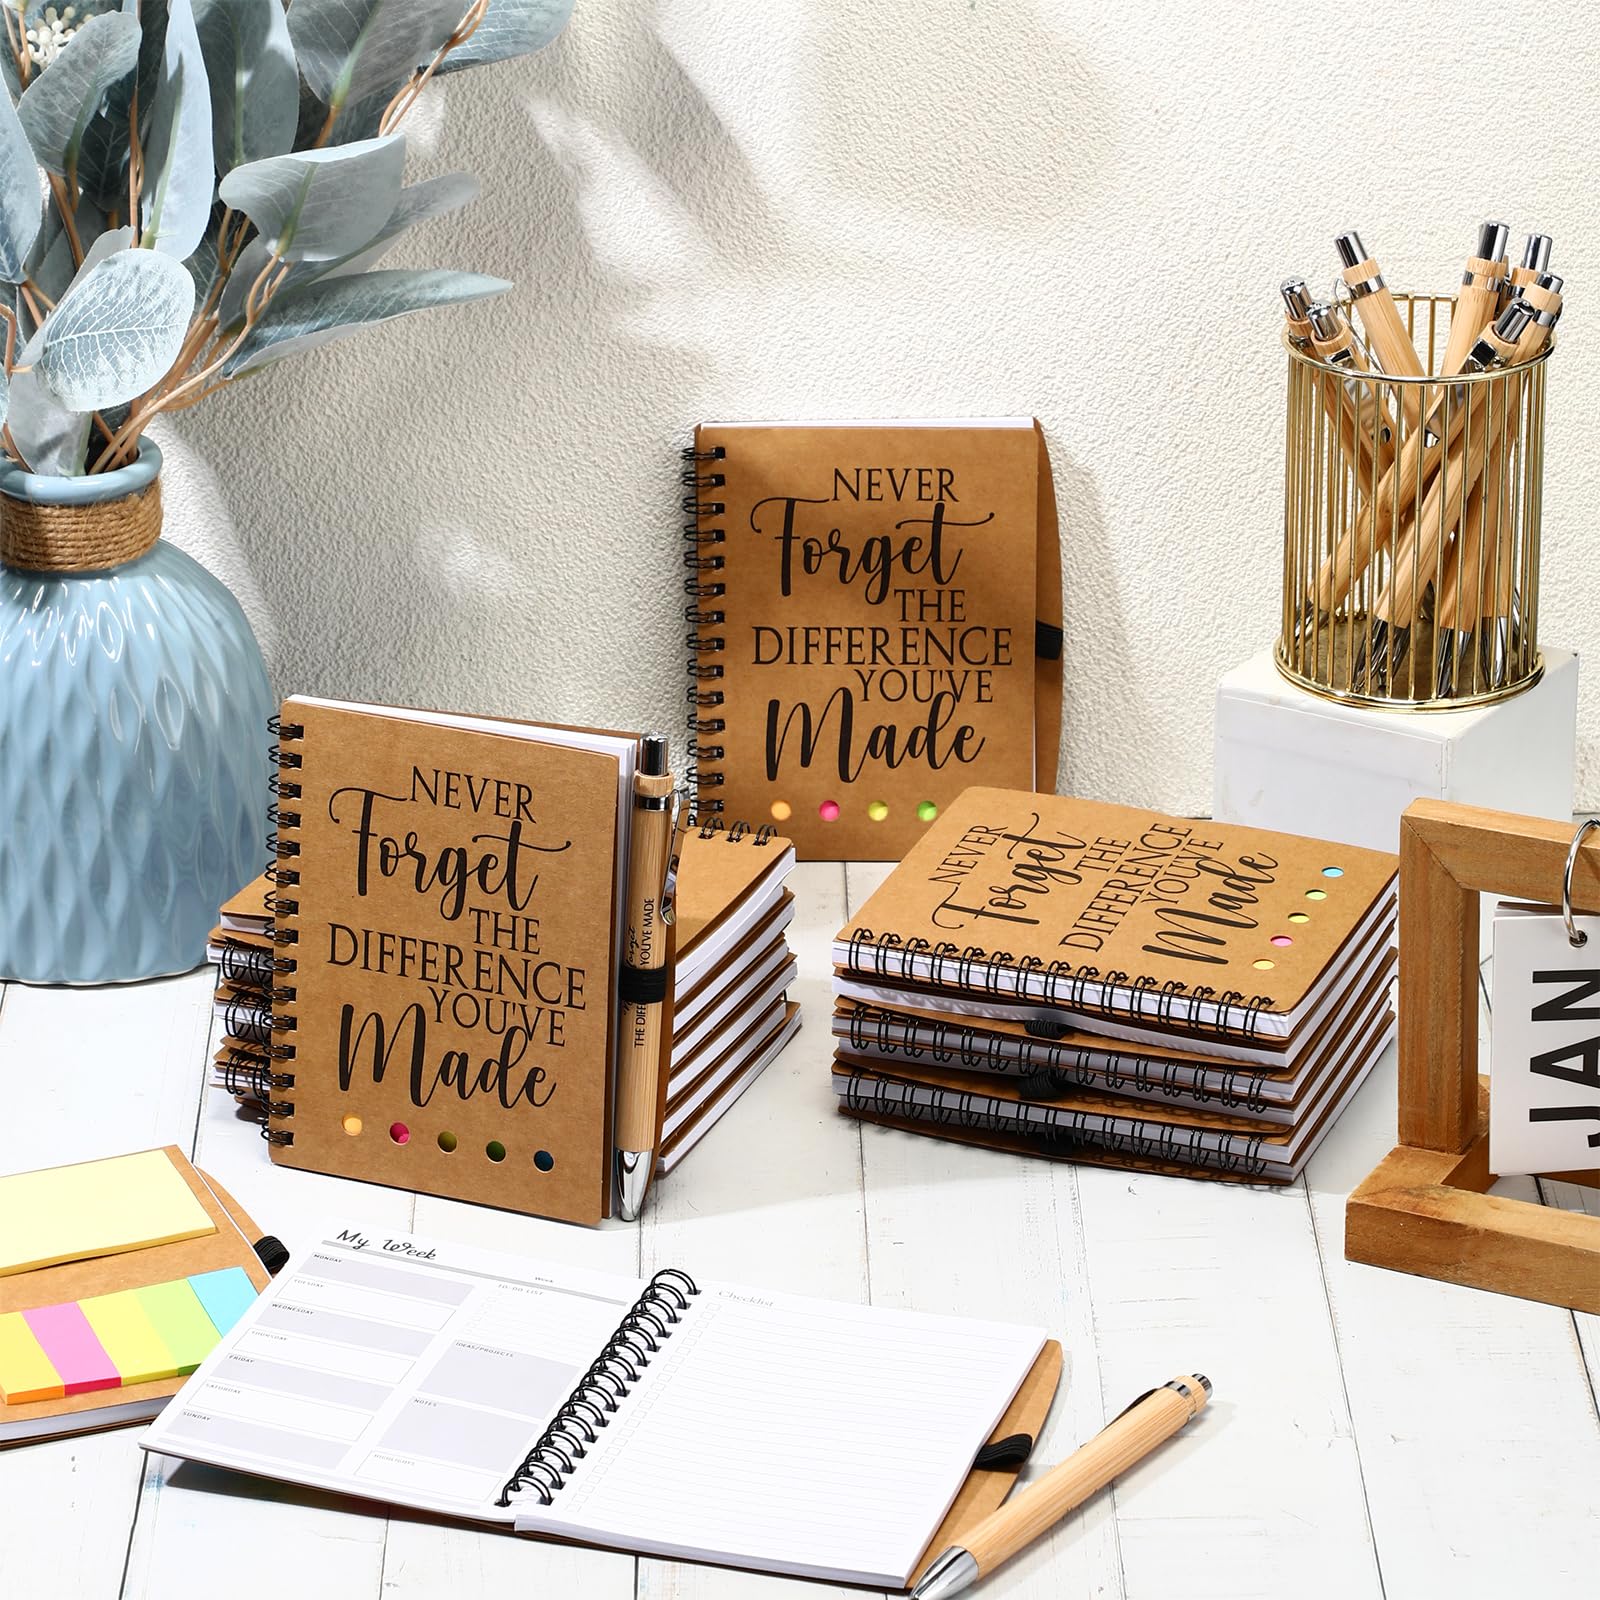 NEVER
Forget
THE
DIFFERENCE
YOU'VE
Made
NEVER
Forget
THE
DIFFERENCE
YOU'VE
Made
THE DIF
YOU'VE MADE
NEVER
Forget
THE
DIFFERENCE
YOU'VE
Made
JAN
My Week
Week
MONDAY
TUESDAY
WEDNESDAY
THURSDAY
FRIDAY
SATURDAY
SUNDAY
TO-DO LIST
IDEAS/PROJECTS
NOTES
HIGHLIGHTS
Checklist